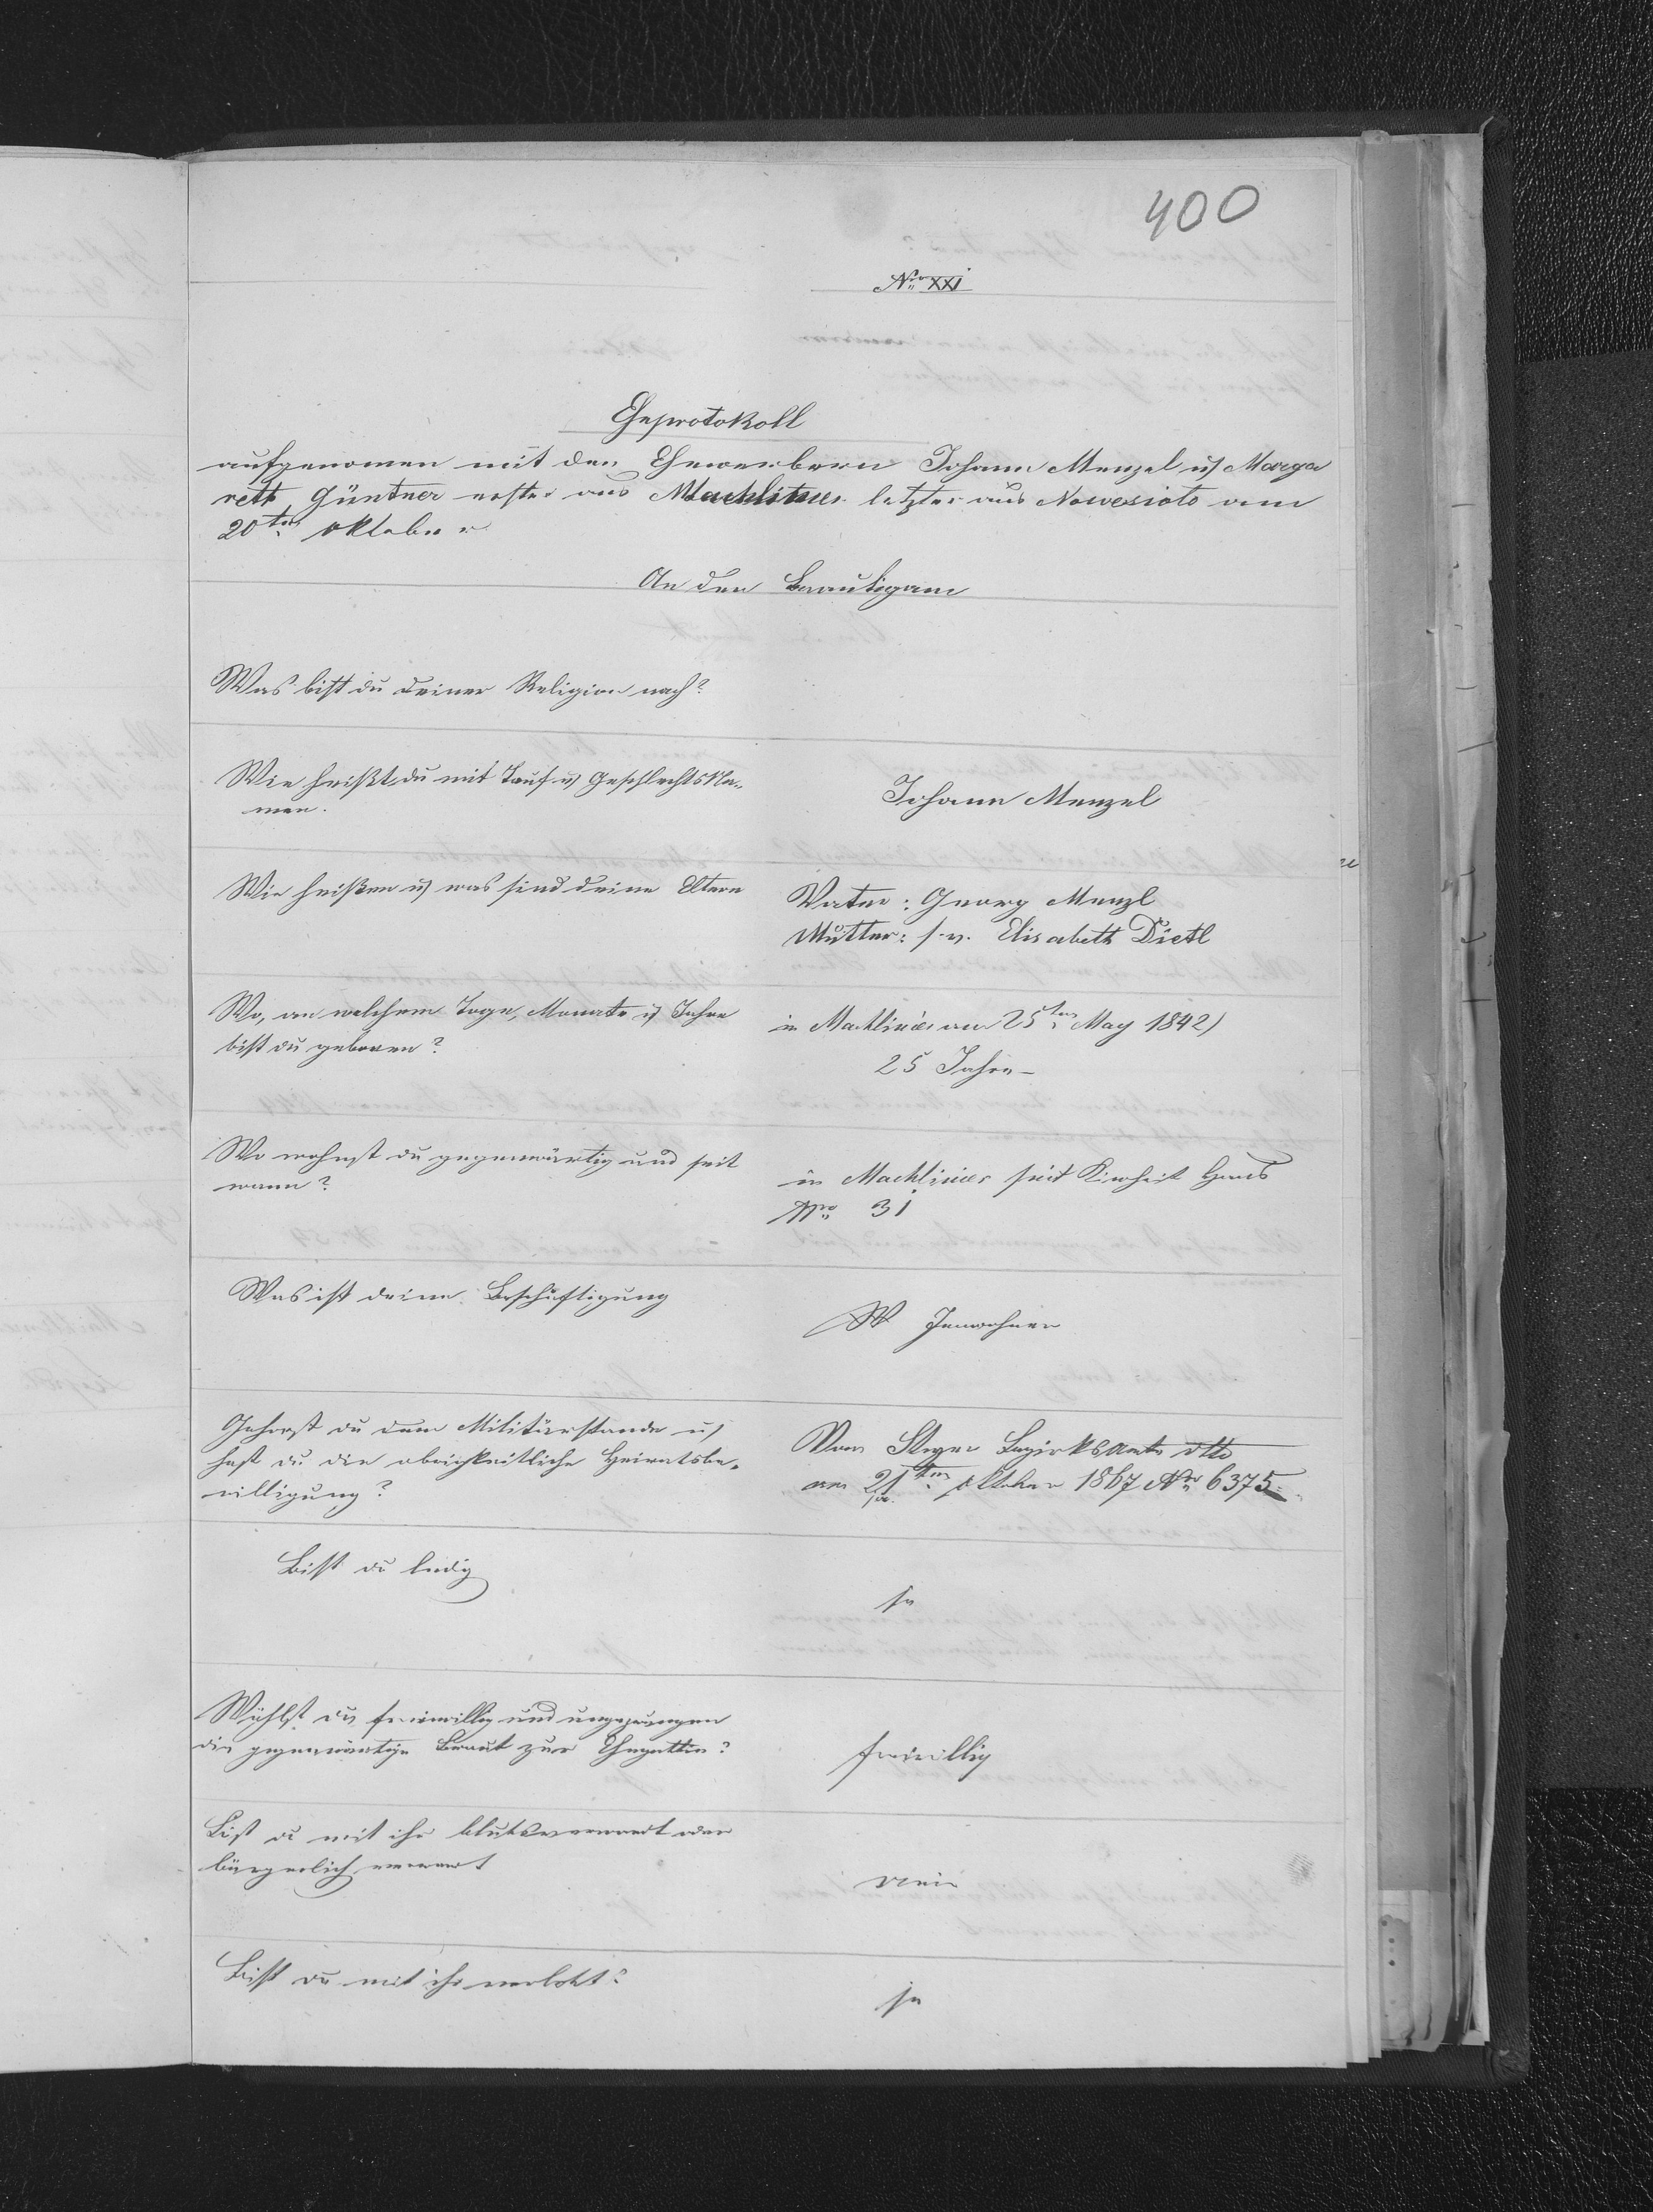 400
Nro XXI
Eheprotokoll
aufgenomen mit den Ehewerbern Johann Menzel u Marga
reth Güntner erster aus Machlinier letzter aus Nowesioto am
20ten Oktober
An den Brautigam
Was bist du deiner Religion nach?
Wie heißt du mit Tauf u Geschlechtsna-
men.
Johann Menzel
Wie heißen u was sind deine Eltern
Vater: Georg Menzl
Mutter: Elisabeth Dietl
Wo, an welchem Tage, Monate u Jahre
bist du geboren?
in Machlinier am 25ten May 1842
25 Jahre
Wo wohnst du gegenwärtig und seit
wann?
in Machlinier seit Kinheit Haus
Nro 31
Was ist deine Beschäftigung
Innwohner
Gehorst du dem Militärstande u
hast du die obrigkeitliche Heiratsbe-
willigung?
Vom Stryer Bezirksamte dtto
am 21ten Oktober 1867 Nro 6375
Bist du ledig
ja
Wählst du freiwillig und ungezwungen
die gegenwärtige Braut zur Ehegattin?
freiwillig
Bist du mit ihr blutsverwandt oder
bürgerlich verwant
nein
Bist du mit ihr verlobt?
ja